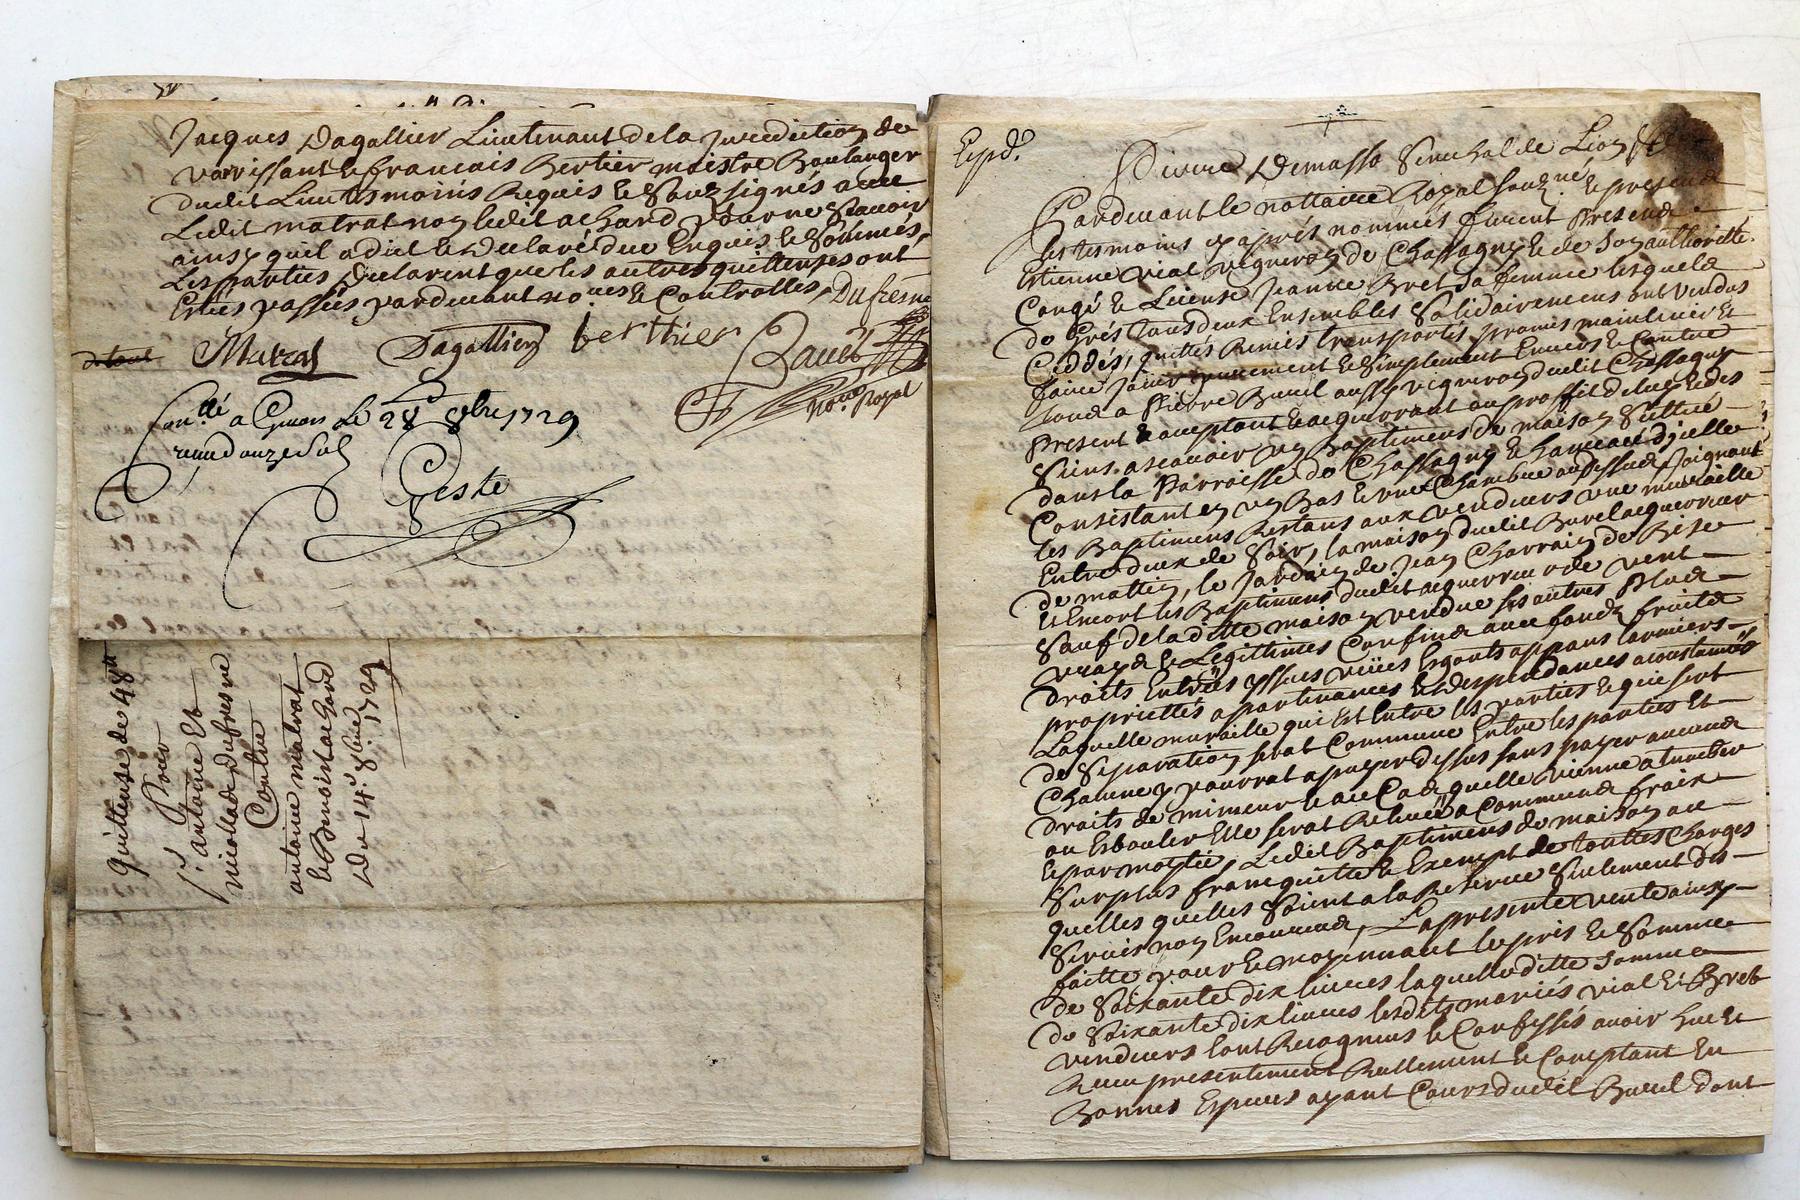 Jacques Dagallier Lieutenant de la Jurediction de
varissant et francois Bertier maistre Boulanger
dudit Lieu tesmoins Requis et Soussignés avec
Ledit matrat non ledit achard pour ne Scavoir
ainsy quil a dict et declaré de ce Enquis et Sommés,
Les parties declarent que les autres quittenses ont
Estées passées pardevant no.res et Controllés, Dufresne
Matrat Dagallier berthier
no.re Royal
Con.llé a Givors Le 28 8bre 1729
receu douze Sols
Geste
quittense de 48lt
Pour
s.r antoine Et
nicollas Dufresne
Contre
antoine matrat
et Benoist achard
Du 14.e 8bre 1729
Expd.
Pierre Demasso Senechal de Lion
Pardevant le nottaire Royal souzné. et present
les tesmoins cy aprés nommés furent Presend
Estienne vial vigneron de Chassagny et de son authorette
Congé et License Jeanne Bret sa femme lesquels
de Grés tous deux Ensembles Solidairement ont vendus
Ceddés, quittés Remis transportés promis maintenir Et
faire Jouir purement et Simplement Envers et Contre
tous a Pierre Burel aussy vigneron dudit Chassagny
Present et aceptant et acquerrant au proffit de luy et des
Siens. ascavoir un Baptimens de maison Scittué
dans la Parroisse de Chassagny et hameau d'jcelle
Consistant en un Bas et une Chambre au dessus Joignant
les Baptimens Restans aux vendeurs une muraille
Entre deux de Soir, la maison dudit Burel acquerreur
de mattin, le Jardin de Jean Charrain de Bise
et Encort les Baptimens dudit acquerreur de vent
Sauf de la ditte maison vendue ses autres Plus
vrays et Legittimes Confins avec fonds fruits
droits Entrées yssues vuües Esgouts appans larmiers
proprietés apartenances et despendances acoustumés
Laquelle muraille qui Est Entre les parties et qui sert
de Separation serat Commune Entre les parties Et
Chacune y pourrat apuyer dessus sans payer aucuns
droits de mimeur et au Cas quelle vienne a tumber
ou Esbouler Elle serat Relevée a Communs fraix
et par moytié, Ledit Baptimens de maison au
Surplus franc quitte et Exempt de touttes Charges
quelles quelles soient a la Reserve Seulement des
Servis non Encourrus, La presente vente ainsy
faitte pour et moyennant le pris et Somme
de Soixante dix livres laquelle ditte somme
de Soixante dix livres lesdits mariés vial Et Bret
vendeurs ont Recognus et Confessés avoir heu Et
Receu presentement Reellement et Comptant En
Bonnes Especes ayant Cours dudit Burel dont